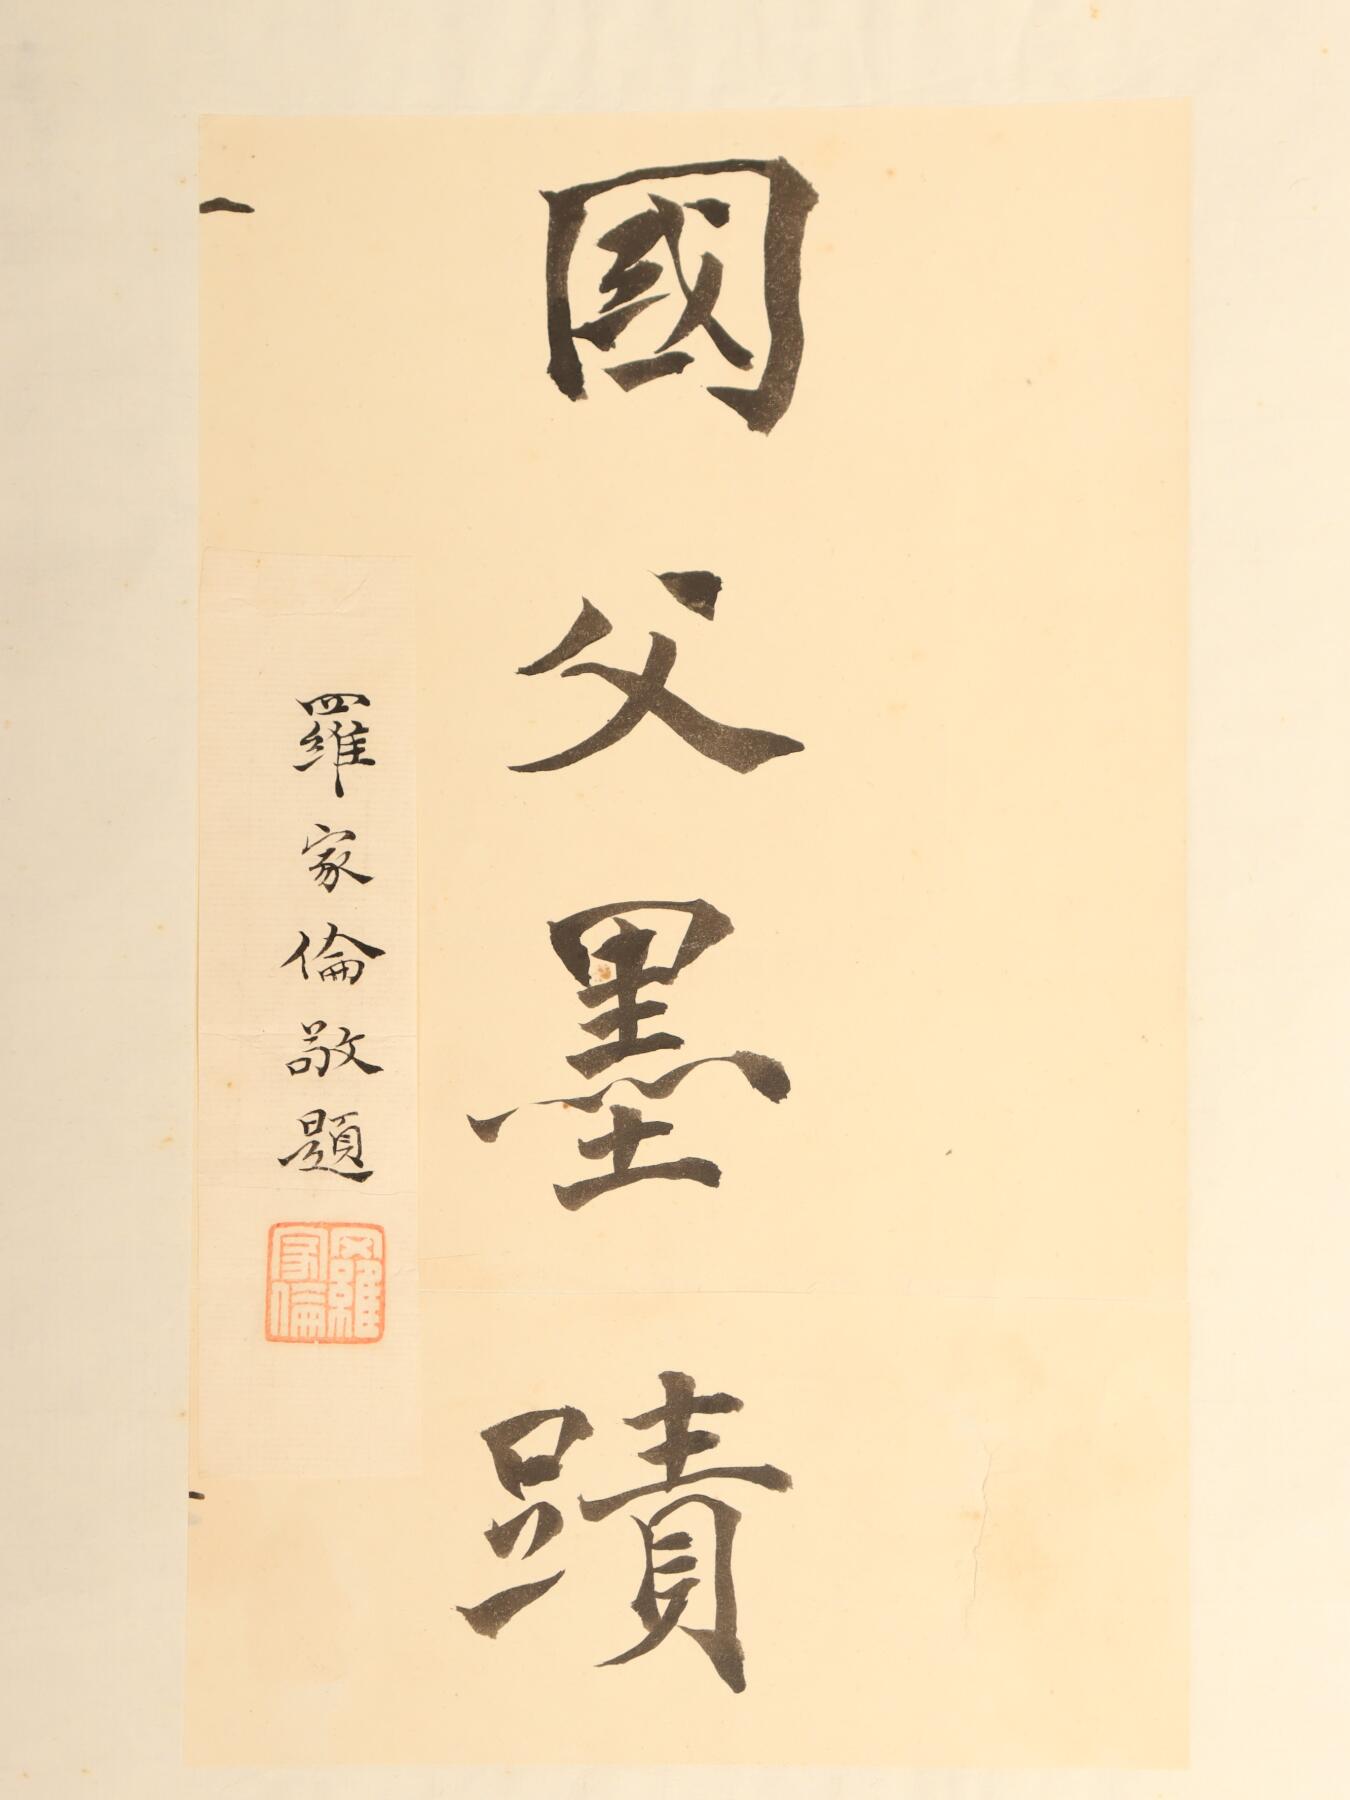 國父墨蹟
羅家倫敬題
羅家倫